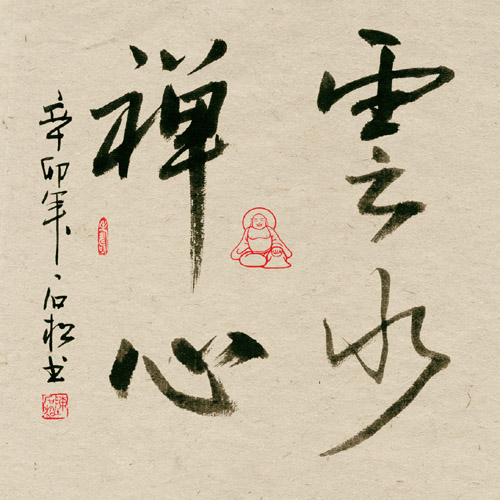 雲水
禪心
辛卯年石松书